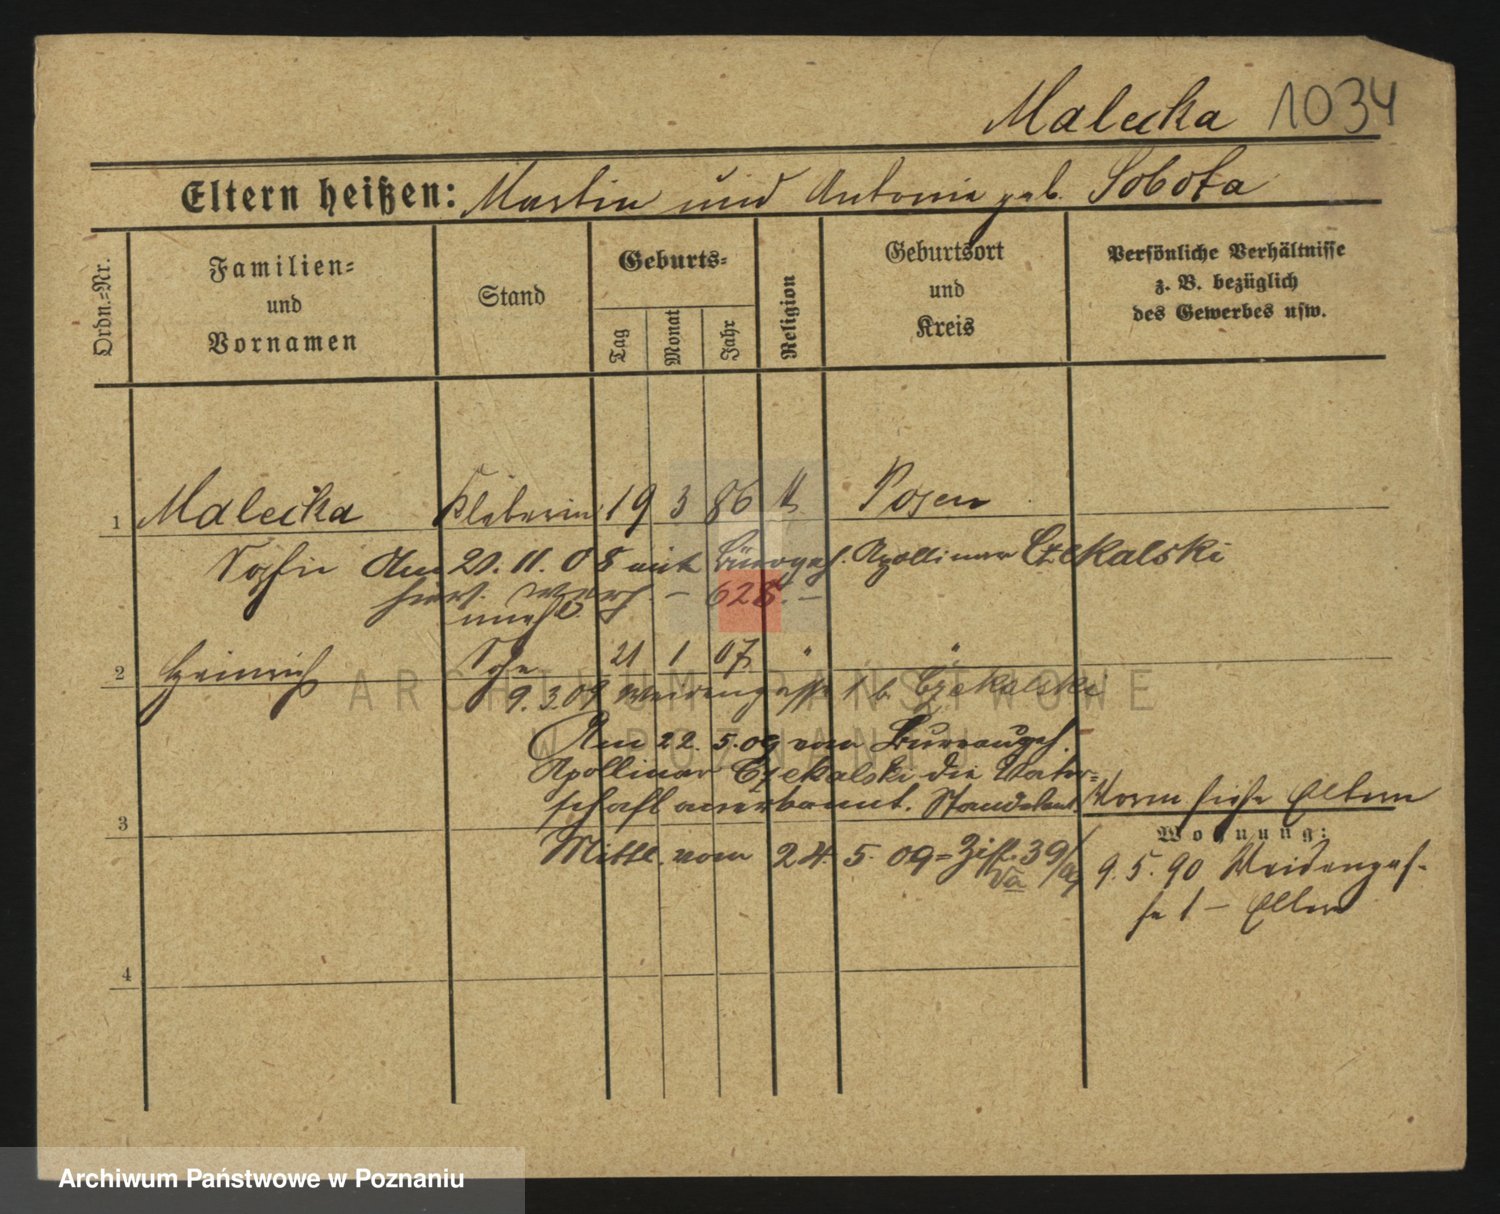 Malecka 1034
Eltern heißen: Martin und Antonie geb. Sobota
Ordn.-Nr.
Familien-
und
Vornamen
Stand
Geburts-
Tag
Monat
Jahr
Religion
Geburtsort
und
Kreis
Persönliche Verhältnisse
z. B. bezüglich
des Gewerbes usw.
1 Malecka Kleberin 19 3 86 k Posen
Sofie Am 20. 11. 08 mit Bürogeh. Apollinar Czekalski
verh. – 628. –
2 Heinrich Sohn 21 1 07 " "
9.3.09 Weidengasse 1 b. Czekalski
Am 22. 5. 09 vom Bureaugeh.
Apollinar Czekalski die Vater-
schaft anerkannt. Standesamt
3
Mittl. vom 24 5. 09 = Ziff. 39/09
Va
Vorm siehe Eltern
Wohnung:
9. 5. 90 Weidengas-
se 1 – Eltern
4
ARCHIWUM PAŃSTWOWE
W POZNANIU
Archiwum Państwowe w Poznaniu